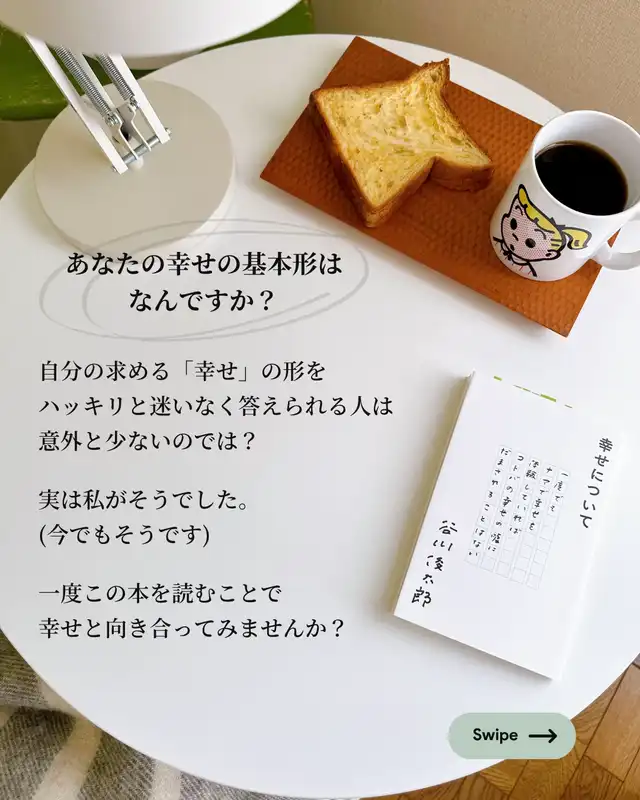 あなたの幸せの基本形は
なんですか？
自分の求める「幸せ」の形を
ハッキリと迷いなく答えられる人は
意外と少ないのでは？
実は私がそうでした。
(今でもそうです)
一度この本を読むことで
幸せと向き合ってみませんか？
幸せについて
一度でも
ナマで幸せを
体験していれば
コトバの幸せの嘘に
だまされることはない
谷川俊太郎
Swipe